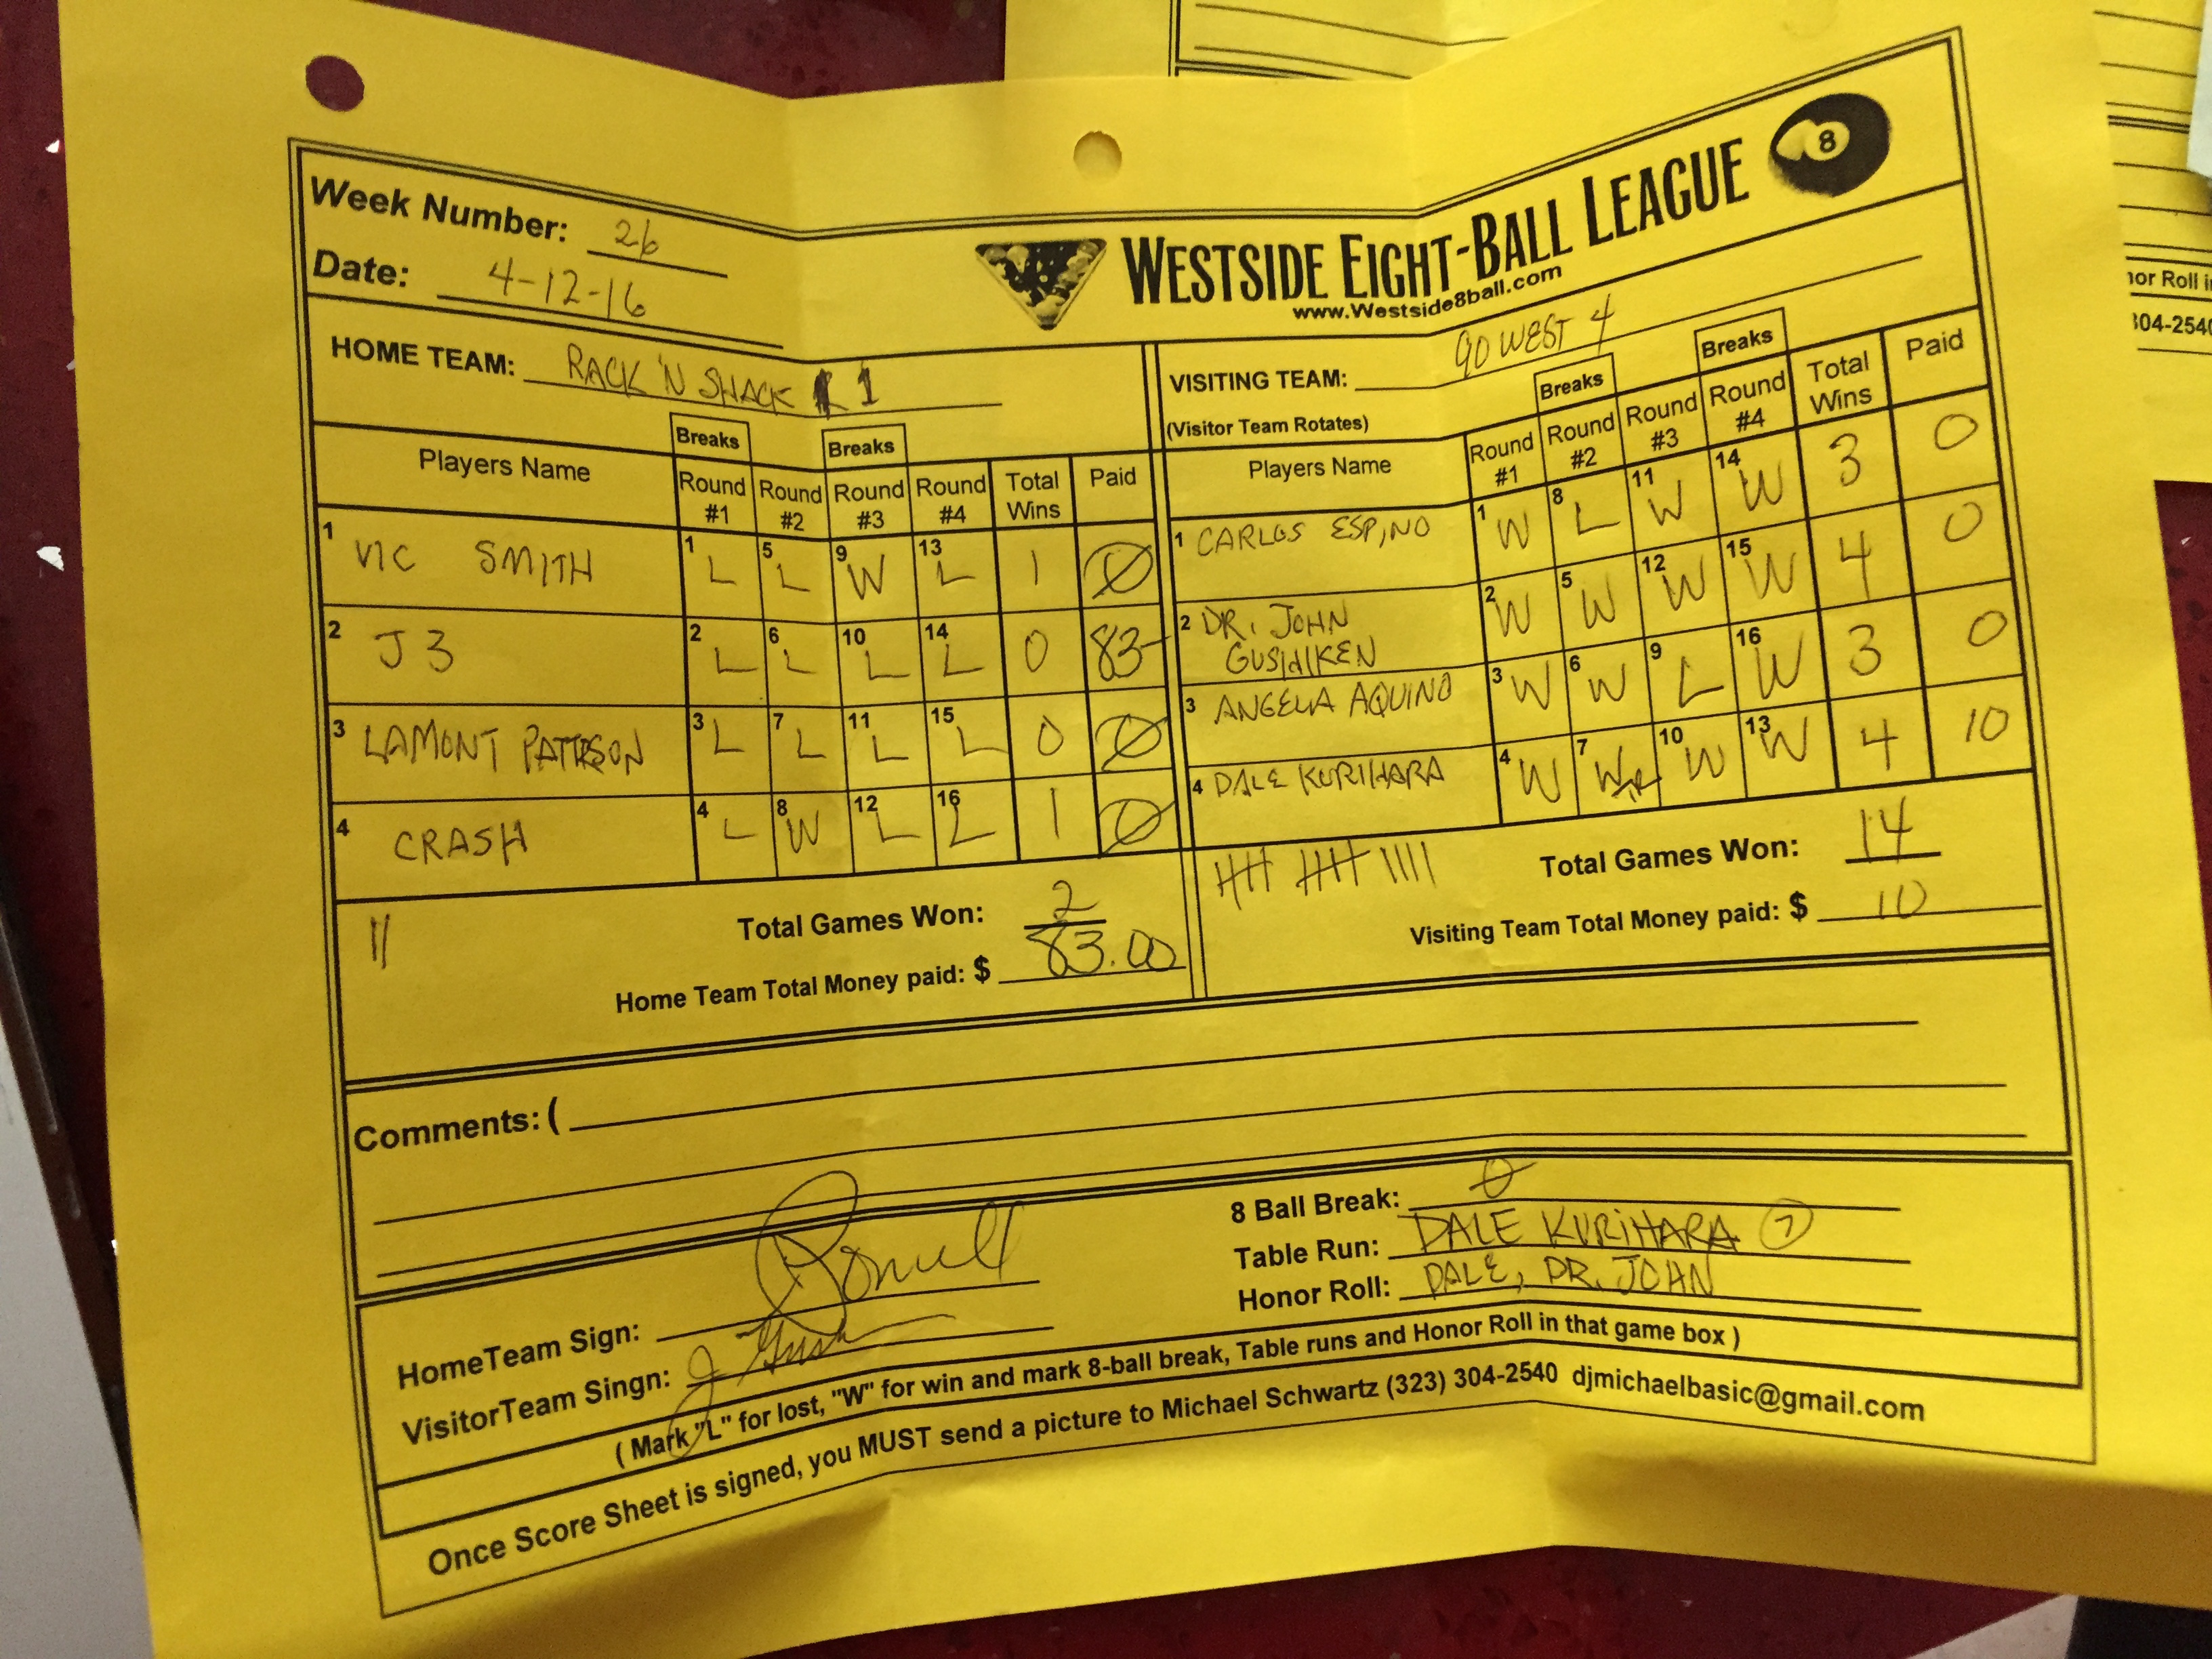 Week Number: 26
Date: 4-12-16
WESTSIDE EIGHT-BALL LEAGUE
8
www.Westside8ball.com
HOME TEAM: RACK 'N SHACK 1
VISITING TEAM: GO WEST 4
(Visitor Team Rotates)
Breaks Breaks
Players Name Round #1 Round #2 Round #3 Round #4 Total Wins Paid
1 VIC SMITH 1 L 5 L 9 W 13 L 1 0
2 J3 2 L 6 L 10 L 14 L 0 83-
3 LAMONT 3 L 7 L 11 L 15 L 0 0
4 CRASH 4 L 8 W 12 L 16 L 1 0
|| Total Games Won: 2
Home Team Total Money paid: $ 83.00
Breaks Breaks
Players Name Round #1 Round #2 Round #3 Round #4 Total Wins Paid
1 CARLOS ESPINO 1 W 8 L 11 W 14 W 3 0
2 DR. JOHN GUSHIKEN 2 W 5 W 12 W 15 W 4 0
3 ANGELA AQUINO 3 W 6 W 9 L 16 W 3 0
4 DALE KURIHARA 4 W 7 W 10 W 13 W 4 10
Total Games Won: 14
Visiting Team Total Money paid: $ 10
Comments: (
8 Ball Break: 0
Table Run: DALE KURIHARA 7
Honor Roll: DALE, DR. JOHN
HomeTeam Sign:
VisitorTeam Singn:
( Mark "L" for lost, "W" for win and mark 8-ball break, Table runs and Honor Roll in that game box )
Once Score Sheet is signed, you MUST send a picture to Michael Schwartz (323) 304-2540 djmichaelbasic@gmail.com
nor Roll i
304-2540